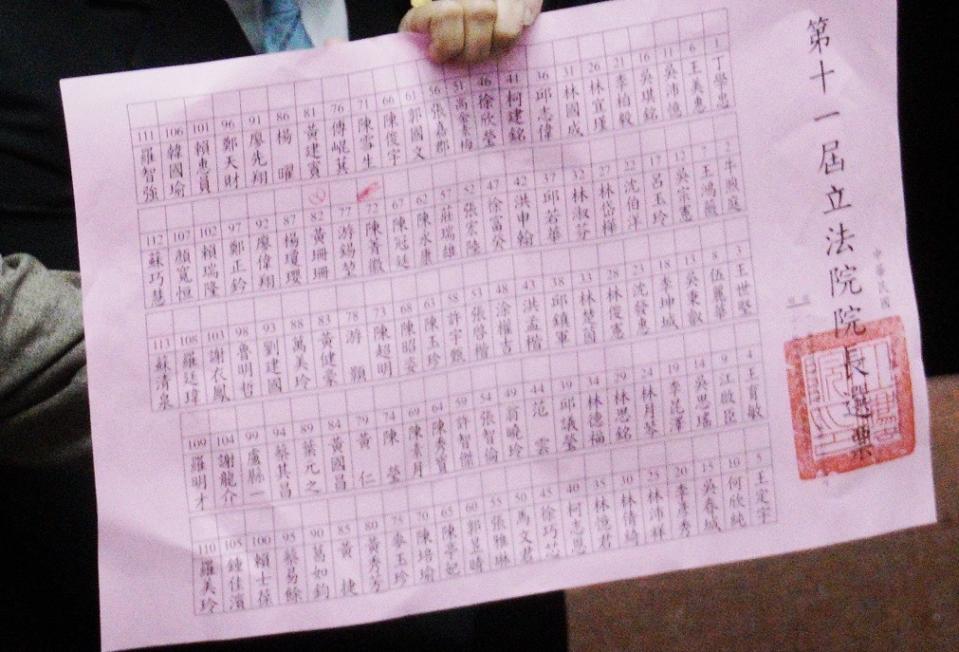 第十一屆立法院院長選票
中華民國
1 丁學忠
2 牛煦庭
3 王世堅
4 王育敏
5 王定宇
6 王美惠
7 王鴻薇
8 伍麗華
9 江啟臣
10 何欣純
11 吳沛憶
12 吳宗憲
13 吳秉叡
14 吳思瑤
15 吳春城
16 吳琪銘
17 呂玉玲
18 李坤城
19 李昆澤
20 李彥秀
21 李柏毅
22 沈伯洋
23 沈發惠
24 林月琴
25 林沛祥
26 林宜瑾
27 林岱樺
28 林俊憲
29 林思銘
30 林倩綺
31 林國成
32 林淑芬
33 林楚茵
34 林德福
35 林憶君
36 邱志偉
37 邱若華
38 邱鎮軍
39 邱議瑩
40 柯志恩
41 柯建銘
42 洪申翰
43 洪孟楷
44 范雲
45 徐巧芯
46 徐欣瑩
47 徐富癸
48 涂權吉
49 翁曉玲
50 馬文君
51 高金素梅
52 張宏陸
53 張啓楷
54 張智倫
55 張雅琳
56 張嘉郡
57 莊瑞雄
58 許宇甄
59 許智傑
60 郭昱晴
61 郭國文
62 陳永康
63 陳玉珍
64 陳秀寳
65 陳亭妃
66 陳俊宇
67 陳冠廷
68 陳昭姿
69 陳素月
70 陳培瑜
71 陳雪生
72 陳菁徽
73 陳超明
74 陳瑩
75 麥玉珍
76 傅崐萁
77 游錫堃
78 游顥
79 黃仁
80 黃秀芳
81 黃建賓
82 黃珊珊
83 黃健豪
84 黃國昌
85 黃捷
86 楊曜
87 楊瓊瓔
88 萬美玲
89 葉元之
90 葛如鈞
91 廖先翔
92 廖偉翔
93 劉建國
94 蔡其昌
95 蔡易餘
96 鄭天財
97 鄭正鈐
98 魯明哲
99 盧縣一
100 賴士葆
101 賴惠員
102 賴瑞隆
103 謝衣鳳
104 謝龍介
105 鍾佳濱
106 韓國瑜
107 顏寬恒
108 羅廷瑋
109 羅明才
110 羅美玲
111 羅智強
112 蘇巧慧
113 蘇清泉